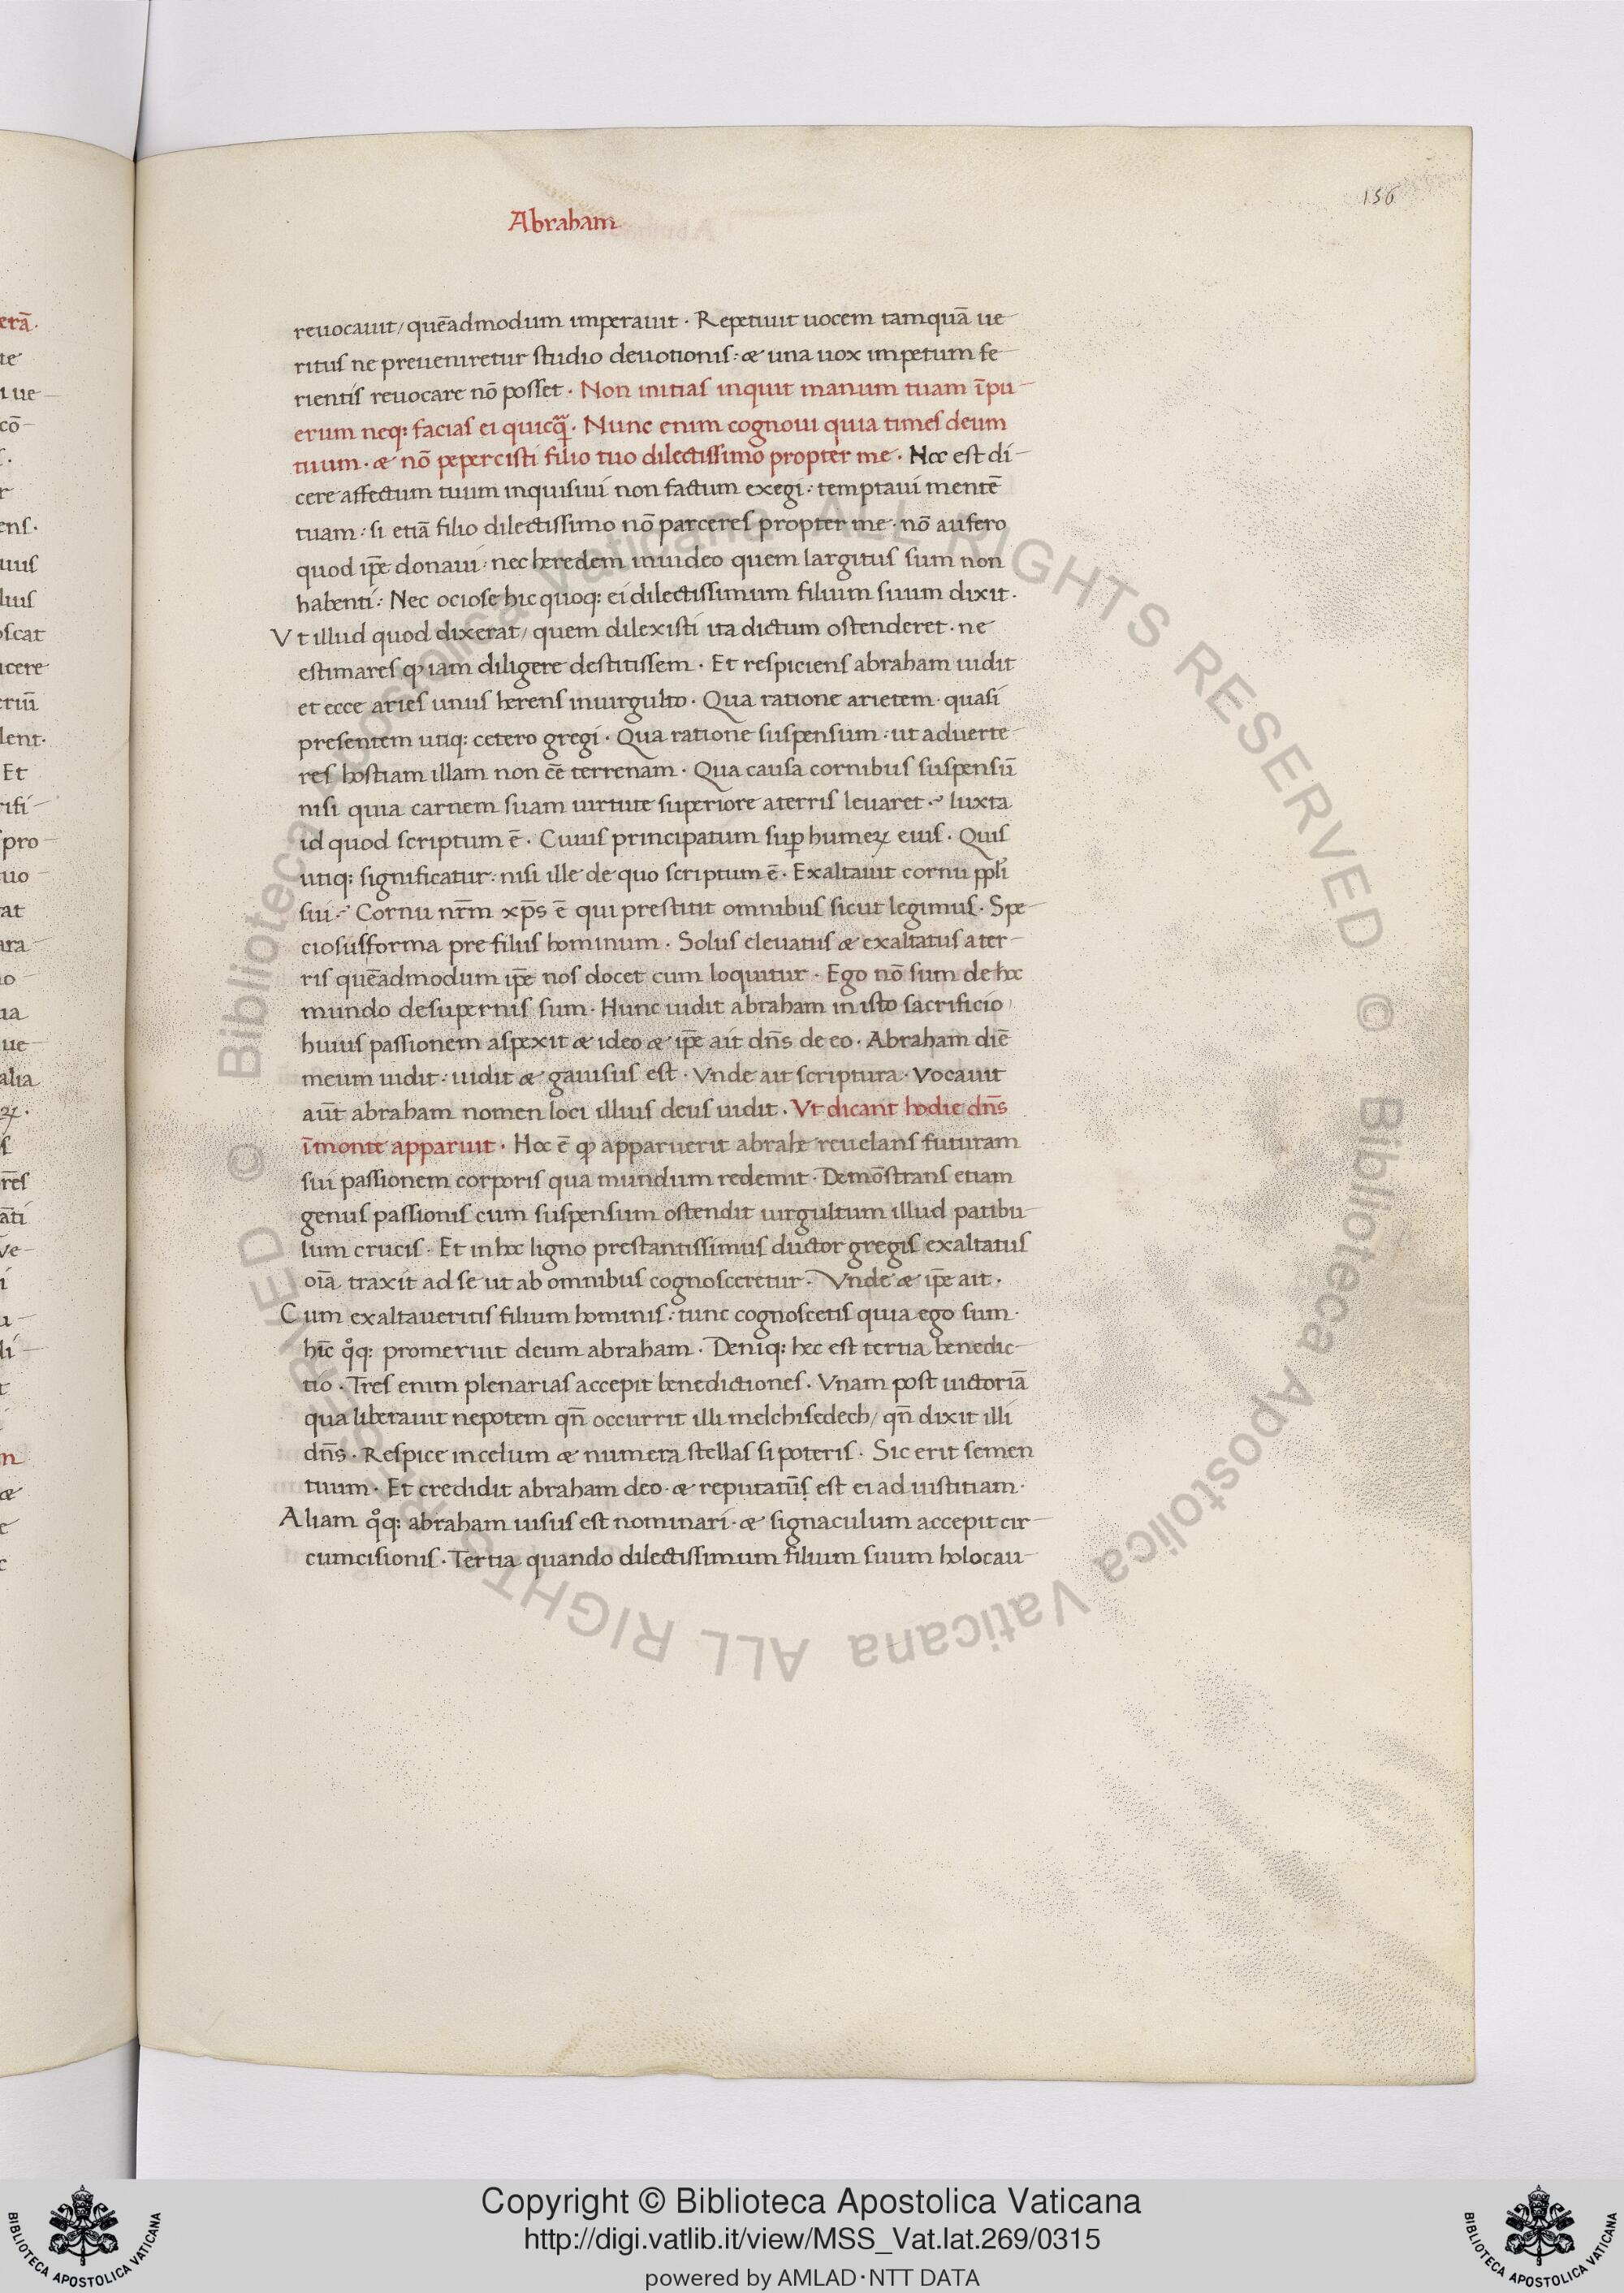 156
Abraham
reuocauit/ quēadmodum imperauit · Repetiuit uocem tamquā ue-
ritus ne preueniretur studio deuotionis : & una uox impetum fe-
rientis reuocare nō posset · Non initias inquit manum tuam ī pu-
erum neq; facias ei quicq̄ · Nunc enim cognoui quia times deum
tuum · & nō pepercisti filio tuo dilectissimo propter me · Hoc est di-
cere affectum tuum inquisiui non factum exegi : temptaui mentē
tuam : si etiā filio dilectissimo nō parceres propter me · nō aufero
quod ip̄e donaui : nec heredem inuideo quem largitus sum non
habenti : Nec ociose hic quoq; ei dilectissimum filium suum dixit ·
Vt illud quod dixerat/ quem dilexisti ita dictum ostenderet · ne
estimares ꝙ iam diligere destitissem · Et respiciens abraham uidit
et ecce aries unus herens in uirgulto · Qua ratione arietem · quasi
presentem utiq; cetero gregi · Qua ratione suspensum : ut aduerte-
res hostiam illam non eē terrenam · Qua causa cornibus suspensū
nisi quia carnem suam uirtute superiore a terris leuaret · Iuxta
id quod scriptum ē · Cuius principatum sup̄ humeꝝ eius · Quis
utiq; significatur : nisi ille de quo scriptum ē · Exaltauit cornu ppl̄i
sui · Cornu nr̄m xp̄s ē qui prestitit omnibus sicut legimus · Spe-
ciosus forma pre filiis hominum · Solus eleuatus & exaltatus a ter-
ris quēadmodum ip̄e nos docet cum loquitur · Ego nō sum de hoc
mundo de supernis sum · Hunc uidit abraham in isto sacrificio
huius passionem aspexit & ideo & ip̄e ait dn̄s de eo · Abraham diē
meum uidit : uidit & gauisus est · Vnde ait scriptura · Vocauit
aūt abraham nomen loci illius deus uidit · Vt dicant hodie dn̄s
ī monte apparuit · Hoc ē ꝙ apparuerit abrahe reuelans futuram
sui passionem corporis qua mundum redemit · Demōstrans etiam
genus passionis cum suspensum ostendit uirgultum illud patibu-
lum crucis · Et in hoc ligno prestantissimus ductor gregis exaltatus
oīa traxit ad se ut ab omnibus cognosceretur · Vnde & ip̄e ait ·
Cum exaltaueritis filium hominis : tunc cognoscetis quia ego sum ·
hīc qͦq; promeruit deum abraham · Deniq; hec est tertia benedic-
tio · Tres enim plenarias accepit benedictiones · Vnam post uictoriā
qua liberauit nepotem qn̄ occurrit illi melchisedech/ qn̄ dixit illi
dn̄s · Respice in celum & numera stellas si poteris · Sic erit semen
tuum · Et credidit abraham deo · & reputatūs est ei ad iustitiam ·
Aliam qͦq; abraham uisus est nominari · & signaculum accepit cir-
cumcisionis · Tertia quando dilectissimum filium suum holocau-
© Biblioteca Apostolica Vaticana ALL RIGHTS RESERVED © Biblioteca Apostolica Vaticana ALL RIGHTS RESERVED
Copyright © Biblioteca Apostolica Vaticana
http://digi.vatlib.it/view/MSS_Vat.lat.269/0315
powered by AMLAD·NTT DATA
BIBLIOTECA APOSTOLICA VATICANA
BIBLIOTECA APOSTOLICA VATICANA